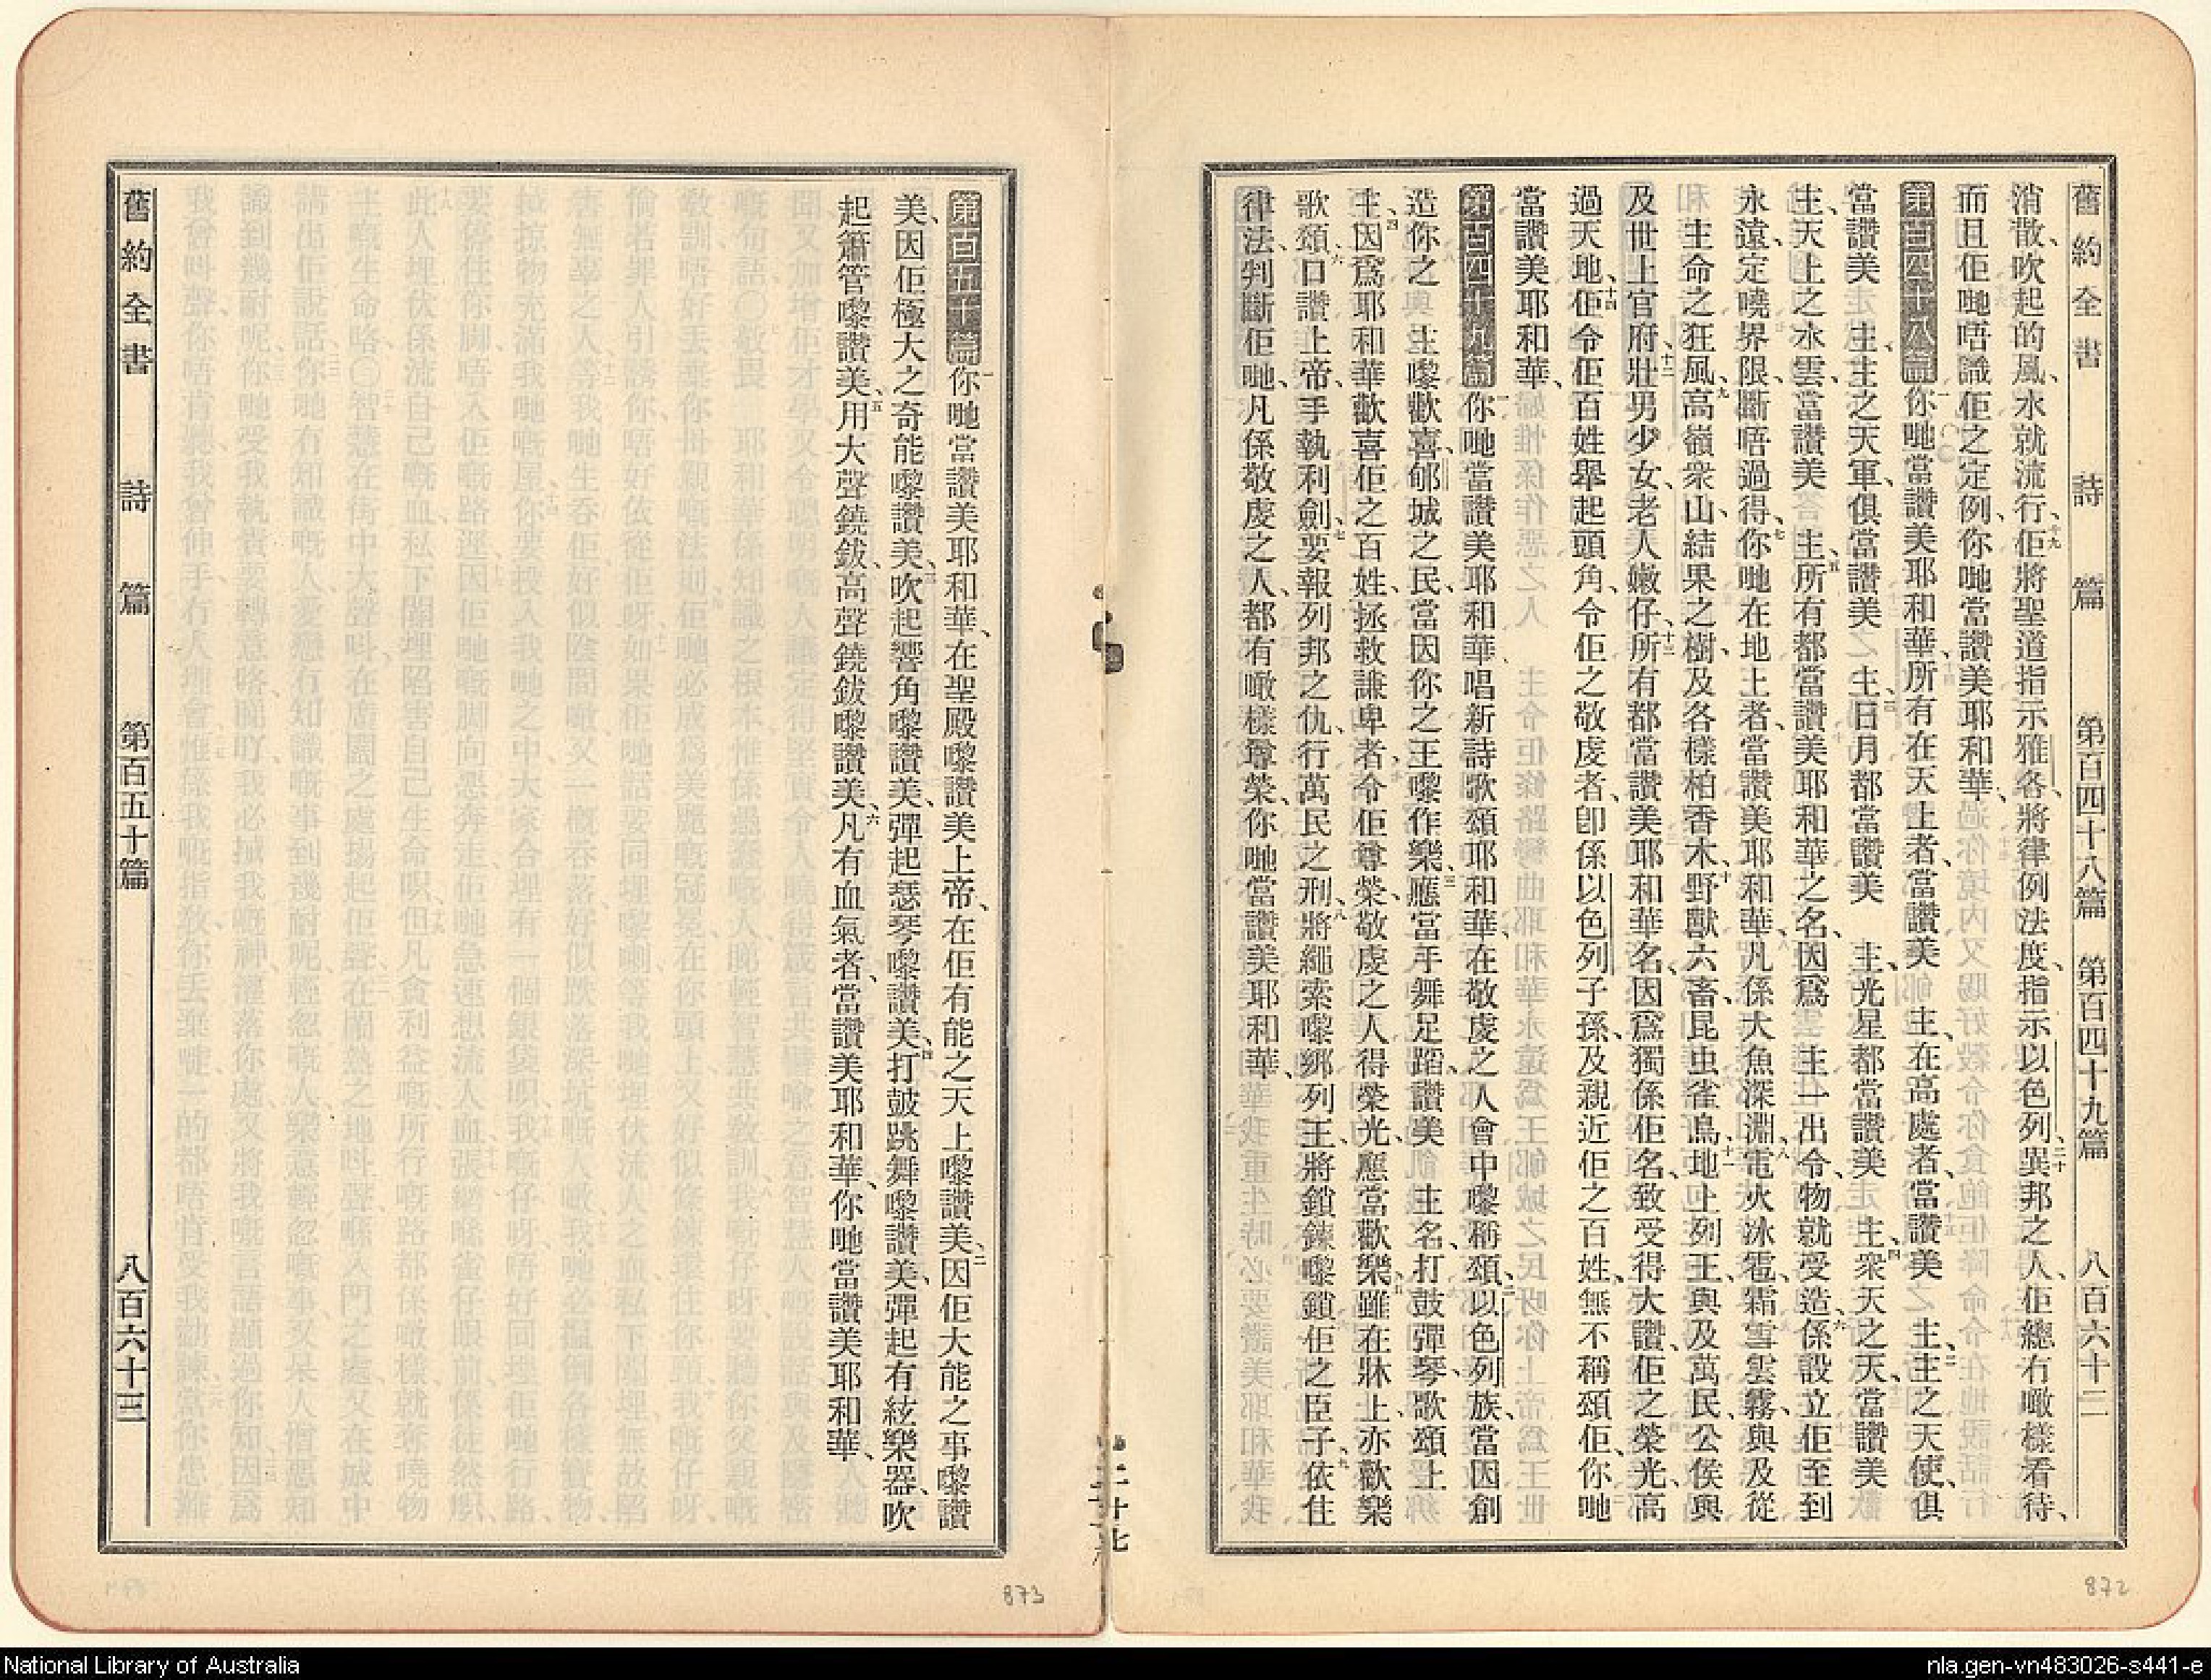 舊約全書 詩篇 第百四十八篇 第百四十九篇 八百六十二
消散、吹起的風、水就流行、十九佢將聖道指示雅各、將律例法度、指示以色列、二十異邦之人、佢總冇噉樣看待、
而且佢哋唔識佢之定例、你哋當讚美耶和華、
第百四十八篇 一你哋當讚美耶和華、所有在天上者、當讚美 主、在高處者、當讚美 主、二主之天使、俱
當讚美 主、主之天軍、俱當讚美 主、三日月都當讚美 主、光星都當讚美 主、四衆天之天、當讚美
主、天上之水雲、當讚美 主、五所有都當讚美耶和華之名、因爲 主一出令、物就受造、六係設立佢至到
永遠、定曉界限、斷唔過得、七你哋在地上者、當讚美耶和華、凡係大魚深淵、八電火冰雹、霜雪雲霧、與及從
主命之狂風、九高嶺衆山、結果之樹、及各樣柏香木、十野獸六畜、昆虫雀鳥、十一地上列王、與及萬民、公侯與
及世上官府、十二壯男少女、老人嫩仔、十三所有都當讚美耶和華名、因爲獨係佢名、致受得大讚、佢之榮光、高
過天地、十四佢令佢百姓舉起頭角、令佢之敬虔者、卽係以色列子孫、及親近佢之百姓、無不稱頌佢、你哋
當讚美耶和華、
第百四十九篇 一你哋當讚美耶和華、唱新詩歌頌耶和華、在敬虔之人會中嚟稱頌、二以色列族、當因創
造你之 主嚟歡喜、郇城之民、當因你之王嚟作樂、三應當手舞足蹈、讚美 主名、打鼓彈琴、歌頌上
主、四因爲耶和華歡喜佢之百姓、拯救謙卑者、令佢尊榮、五敬虔之人得榮光、應當歡樂、雖在牀上、亦歡樂
歌頌、六口讚上帝、手執利劍、七要報列邦之仇、行萬民之刑、八將繩索嚟綁列王、將鎖鍊嚟鎖佢之臣子、九依住
律法、判斷佢哋、凡係敬虔之人、都有噉樣尊榮、你哋當讚美耶和華、
872
第百五十篇 一你哋當讚美耶和華、在聖殿嚟讚美上帝、在佢有能之天上嚟讚美、二因佢大能之事嚟讚
美、因佢極大之奇能嚟讚美、三吹起響角嚟讚美、彈起瑟琴嚟讚美、四打鼓跳舞嚟讚美、彈起有絃樂器、吹
起簫管嚟讚美、五用大聲鐃鈸、高聲鐃鈸嚟讚美、六凡有血氣者、當讚美耶和華、你哋當讚美耶和華、
舊約全書 詩篇 第百五十篇 八百六十三
873
National Library of Australia
nla.gen-vn483026-s441-e